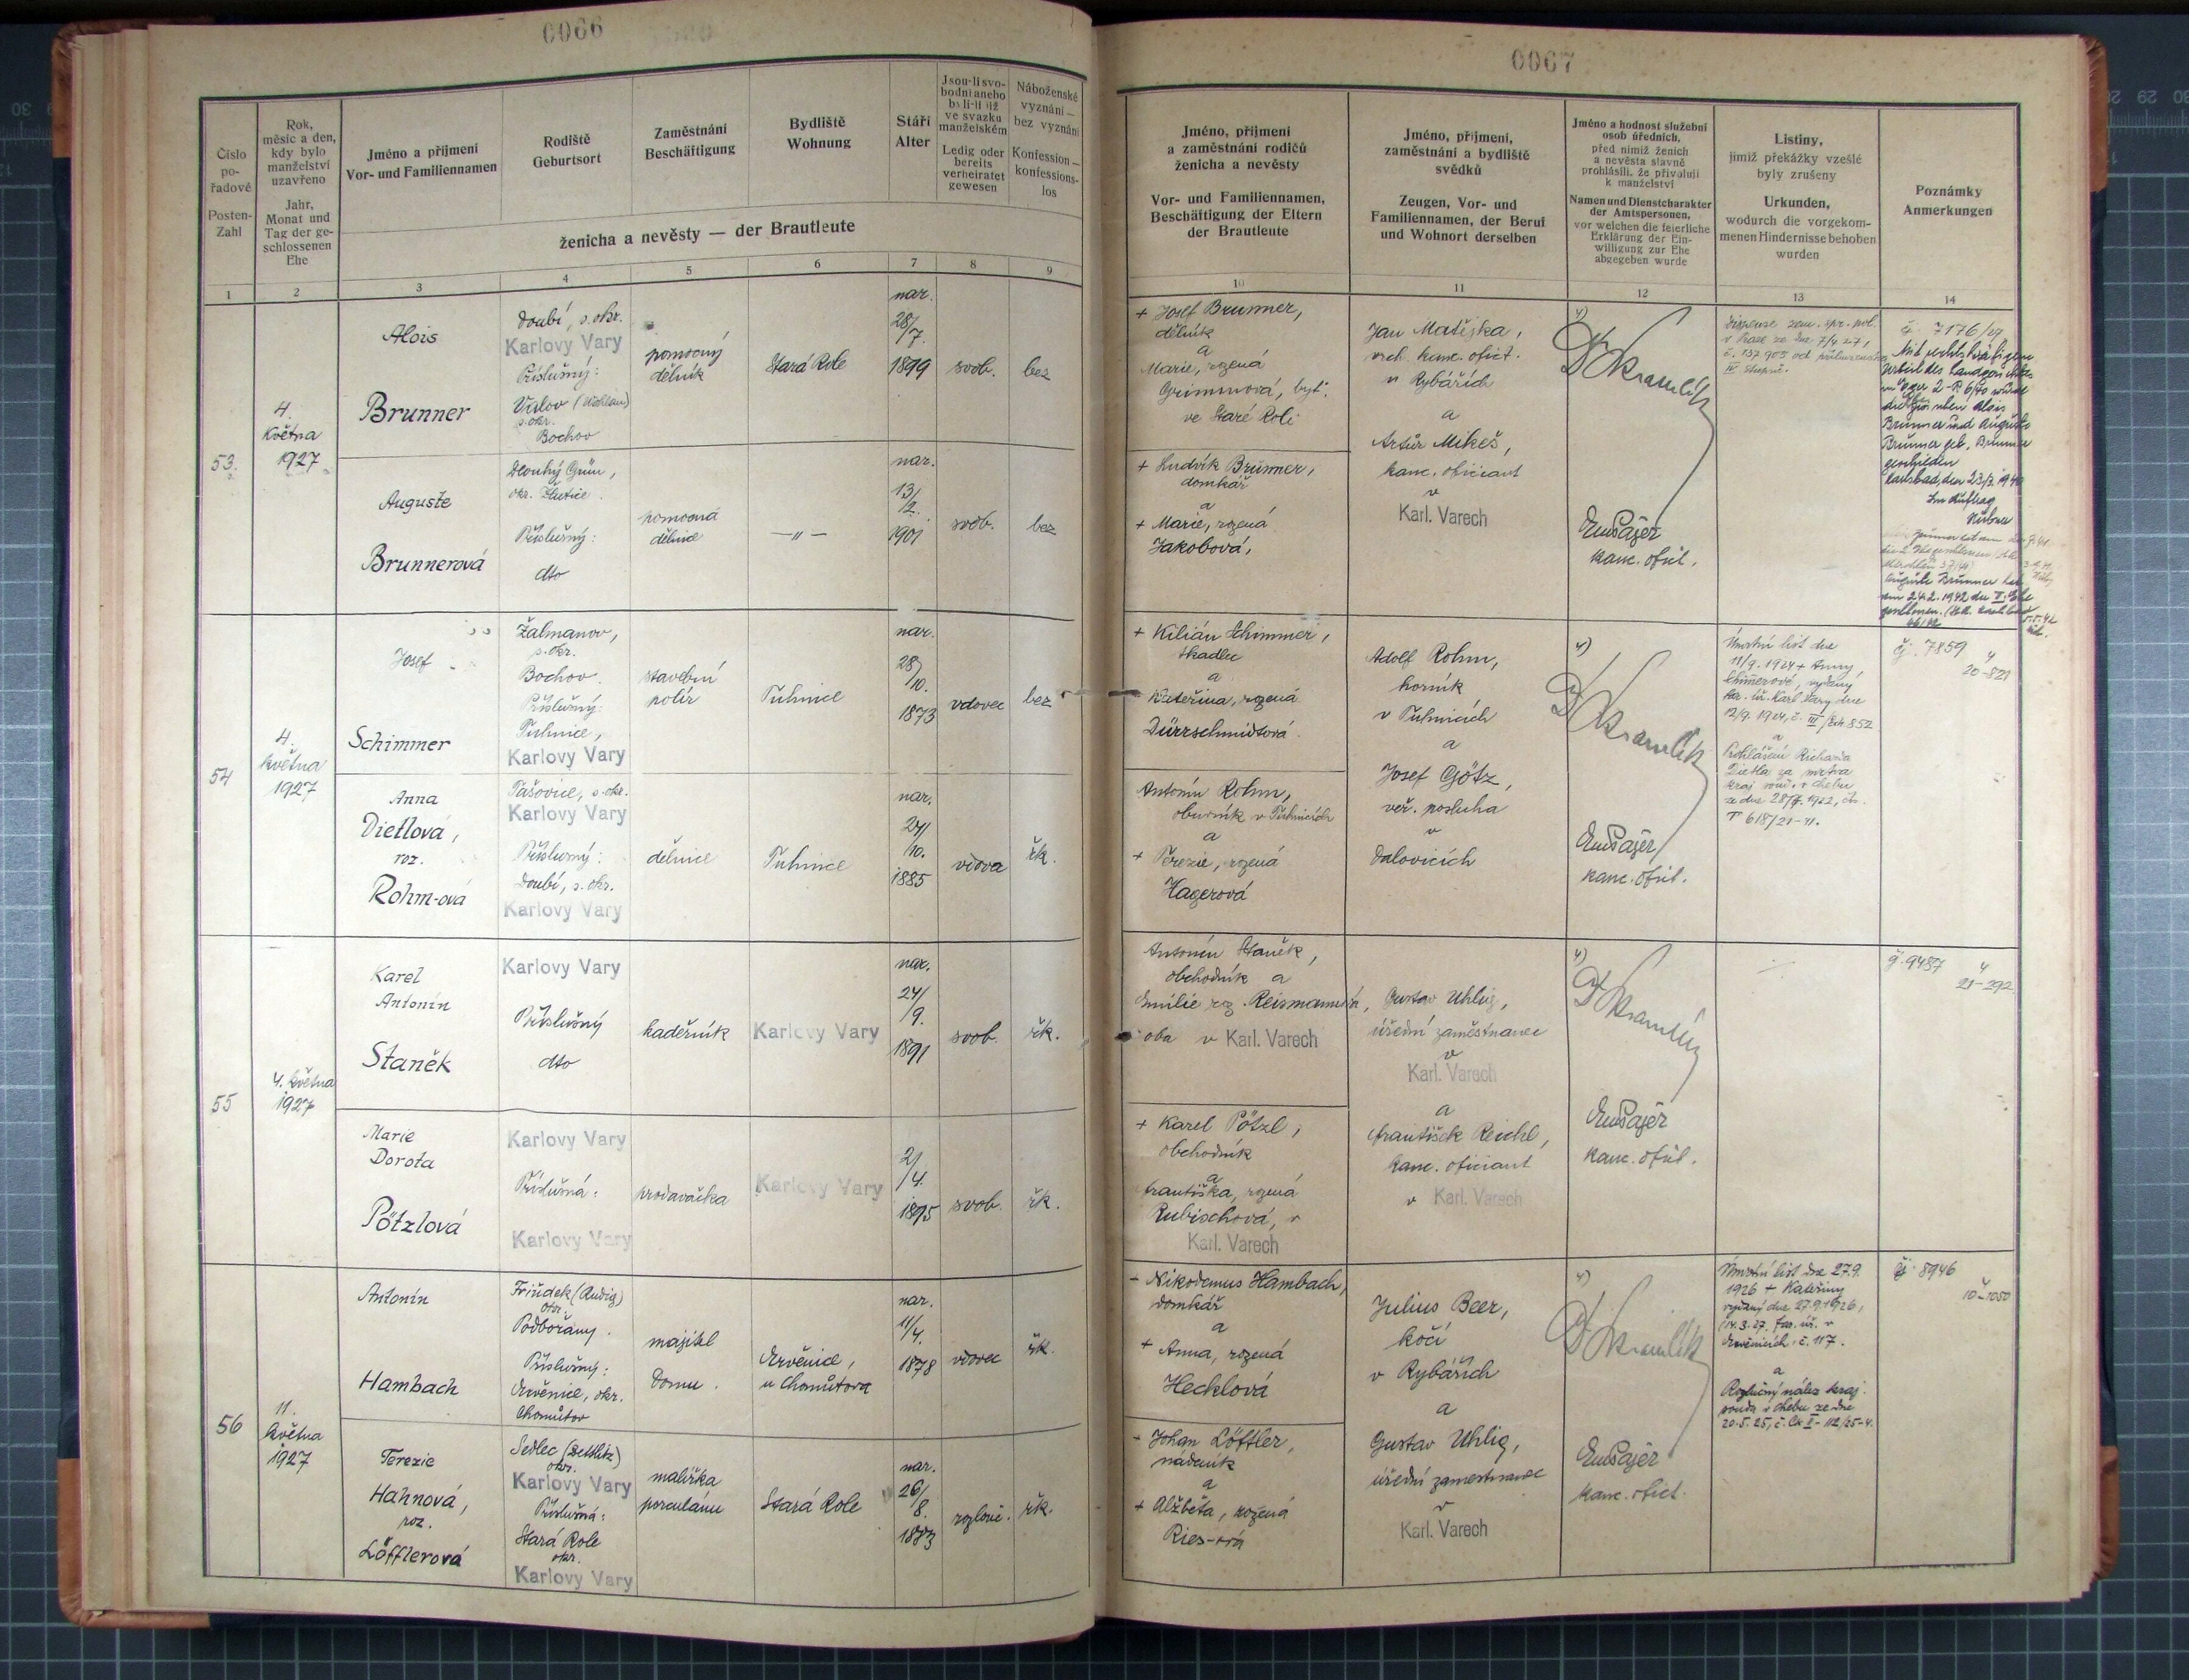 0066
Číslo
po-
řadové
Posten-
Zahl
Rok,
měsíc a den,
kdy bylo
manželství
uzavřeno
Jahr,
Monat und
Tag der ge-
schlossenen
Ehe
Jméno a příjmení
Vor- und Familiennamen
Rodiště
Geburtsort
Zaměstnání
Beschäftigung
Bydliště
Wohnung
Stáří
Alter
Jsou-li svo-
bodni anebo
byli-li již
ve svazku
manželském
Ledig oder
bereits
verheiratet
gewesen
Náboženské
vyznání —
bez vyznání
Konfession —
konfessions-
los
ženicha a nevěsty — der Brautleute
1
2
3
4
5
6
7
8
9
53.
4.
května
1927
Alois
Brunner
Doubí, s. okr.
Karlovy Vary
Příslušný:
Valov
s. okr.
Bochov
pomocný
dělník
Stará Role
nar.
28/
7.
1899
svob.
bez
Auguste
Brunnerová
Dlouhý Grün,
okr. Žlutice.
Příslušný:
dto
pomocná
dělnice
—"—
nar.
13/
2.
1901
svob.
bez
54
4.
května
1927
Josef
Schimmer
Žalmanov,
s. okr.
Bochov.
Příslušný:
Tuhnice,
Karlovy Vary
stavební
polír
Tuhnice
nar.
28/
10.
1873
vdovec
bez
Anna
Dietlová,
roz.
Rohm-ová
Tašovice, s. okr.
Karlovy Vary
Příslušný:
Doubí, s. okr.
Karlovy Vary
dělnice
Tuhnice
nar.
24/
10.
1885
vdova
řk.
55
4. května
1927
Karel
Antonín
Staněk
Karlovy Vary
Příslušný
dto
kadeřník
Karlovy Vary
nar.
24/
9.
1891
svob.
řk.
Marie
Dorota
Pötzlová
Karlovy Vary
Příslušná:
Karlovy Vary
prodavačka
Karlovy Vary
2/
4.
1895
svob.
řk.
56
11.
května
1927
Antonín
Hambach
okr.
Podbořany.
Příslušný:
Ervěnice, okr.
Chomůtov
majitel
domu.
Ervěnice,
u Chomůtova
nar.
11/
4.
1878
vdovec
řk.
Terezie
Hahnová,
roz.
Löfflerová
Sedlec
okr.
Karlovy Vary
Příslušná:
Stará Role
okr.
Karlovy Vary
malířka
porculánu
Stará Role
nar.
26/
8.
1883
rozlouč.
řk.
0067
Jméno, příjmení
a zaměstnání rodičů
ženicha a nevěsty
Vor- und Familiennamen,
Beschäftigung der Eltern
der Brautleute
Jméno, příjmení,
zaměstnání a bydliště
svědků
Zeugen, Vor- und
Familiennamen, der Beruf
und Wohnort derselben
Jméno a hodnost služební
osob úředních,
před nimiž ženich
a nevěsta slavně
prohlásili, že přivolují
k manželství
Namen und Dienstcharakter
der Amtspersonen,
vor welchen die feierliche
Erklärung der Ein-
willigung zur Ehe
abgegeben wurde
Listiny,
jimiž překážky vzešlé
byly zrušeny
Urkunden,
wodurch die vorgekom-
menen Hindernisse behoben
wurden
Poznámky
Anmerkungen
10
11
12
13
14
+ Josef Brunner,
dělník
a
Marie, rozená
Grimmová, byt.
ve Staré Roli
Jan Matějka,
vrch. kanc. ofict.
v Rybářích
a
Artur Mikeš,
kanc. oficiant
v
Karl. Varech
4)
Dr Kramlík
Em Pajer
kanc. ofict.
Dispense zem. spr. pol.
v Praze ze dne 7/4 27,
č. 137 905 od příbuzenství
IV stupně.
čj. 7176/27
Mit rechtskräftigem
Urteil des Landgerichtes
in Eger 2-R 6/40 wurde
die Ehe Alois
Brunner und Auguste
Brunner geb. Brunner
geschieden
Karlsbad, den 1940
Im Auftrag
Auguste Brunner hat
am 24.2.1942 die II. Ehe
geschlossen.
+ Ludvík Brunner,
domkář
a
+ Marie, rozená
Jakobová,
+ Kilián Schimmer,
tkadlec
a
+ Kateřina, rozená
Dürrschmidtová.
Adolf Rohm,
horník
v Tuhnicích
a
Josef Götz,
veř. posluha
v
Dalovicích
4)
Dr Kramlík
Em Pajer
kanc. ofict.
Úmrtní list dne
11/9. 1924 + Anny
Schimmerové, vydaný
far. úř. Karl. Vary dne
12/9. 1924, č. III/ 852
a
Prohlášení Richarda
Dietla za mrtva
kraj. soud. v Chebu
ze dne 28/7. 1922, čís.
T 618/21-11.
čj. 7859
4
20-821
Antonín Rohm,
obuvník v Tuhnicích
a
+ Terezie, rozená
Hagerová
Antonín Staněk,
obchodník a
Emilie roz. Reismannová,
oba v Karl. Varech
Gustav Uhlig,
úřední zaměstnanec
v
Karl. Varech
a
František Reichl,
kanc. oficiant
v Karl. Varech
4)
Dr Kramlík
Em Pajer
kanc. ofict.
č. 9487
4
21-292
+ Karel Pötzl,
obchodník
a
Františka, rozená
Rubischová, v
Karl. Varech
+ Nikodemus Hambach,
domkář
a
+ Anna, rozená
Hecklová
Julius Beer,
kočí
v Rybářích
a
Gustav Uhlig,
úřední zaměstnanec
v
Karl. Varech
4)
Dr Kramlík
Em Pajer
kanc. ofict.
Úmrtní list dne 27.9.
1926 + Kateřiny
vydaný dne 27.9.1926,
(14.3.27. far. úř. v
Ervěnicích, č. 117.
a
Rozlučný nález kraj.
soudu v Chebu ze dne
20.5.25, č. Ck I-112/25-4.
čj. 8946
10-1050
+ Johan Löffler,
nádeník
a
+ Alžběta, rozená
Ries-ová